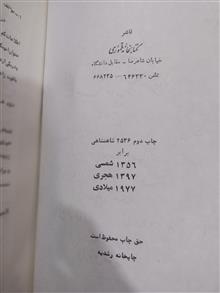 ناشر
کتابخانه طهوری
خیابان شاهرضا - مقابل دانشگاه
تلفن ۶۴۶۳۳۰ - ۶۶۸۲۳۵
چاپ دوم ۲۵۳۶ شاهنشاهی
برابر
۱۳۵۶ شمسی
۱۳۹۷ هجری
۱۹۷۷ میلادی
حق چاپ محفوظ است
چاپخانه رشدیه